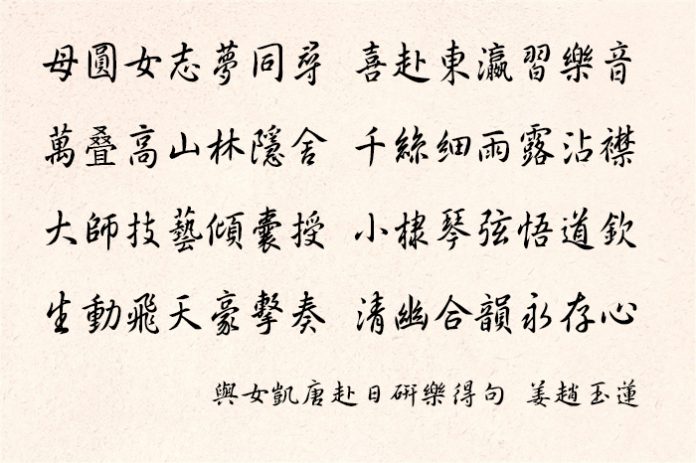 母圓女志夢同尋 喜赴東瀛習樂音
萬叠高山林隱舍 千絲細雨露沾襟
大師技藝傾囊授 小棣琴弦悟道欽
生動飛天豪擊奏 清幽合韻永存心
與女凱唐赴日研樂得句 姜趙玉蓮